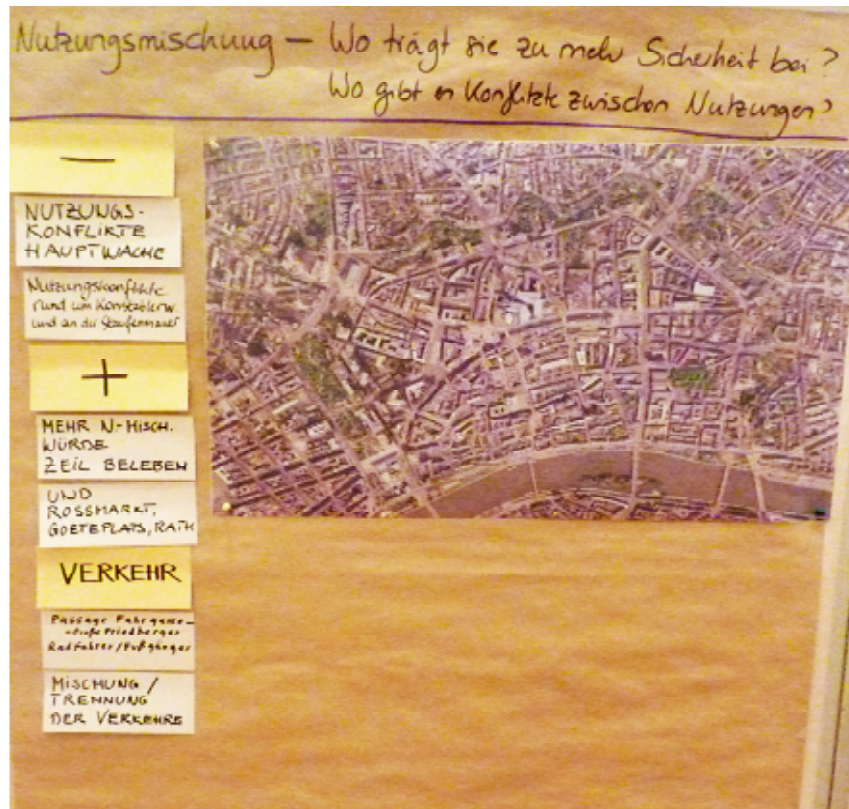 Nutzungsmischung – Wo trägt sie zu mehr Sicherheit bei?
Wo gibt es Konflikte zwischen Nutzungen?
—
NUTZUNGS-
KONFLIKTE
HAUPTWACHE
Nutzungskonflikte
rund um Konstablerw.
und an der Staufenmauer
+
MEHR N-MISCH.
WÜRDE
ZEIL BELEBEN
UND
ROSSMARKT,
GOETEPLATS, RATH
VERKEHR
Passage Fahrgasse –
Große Friedberger
Radfahrer/Fußgänger
MISCHUNG /
TRENNUNG
DER VERKEHRE